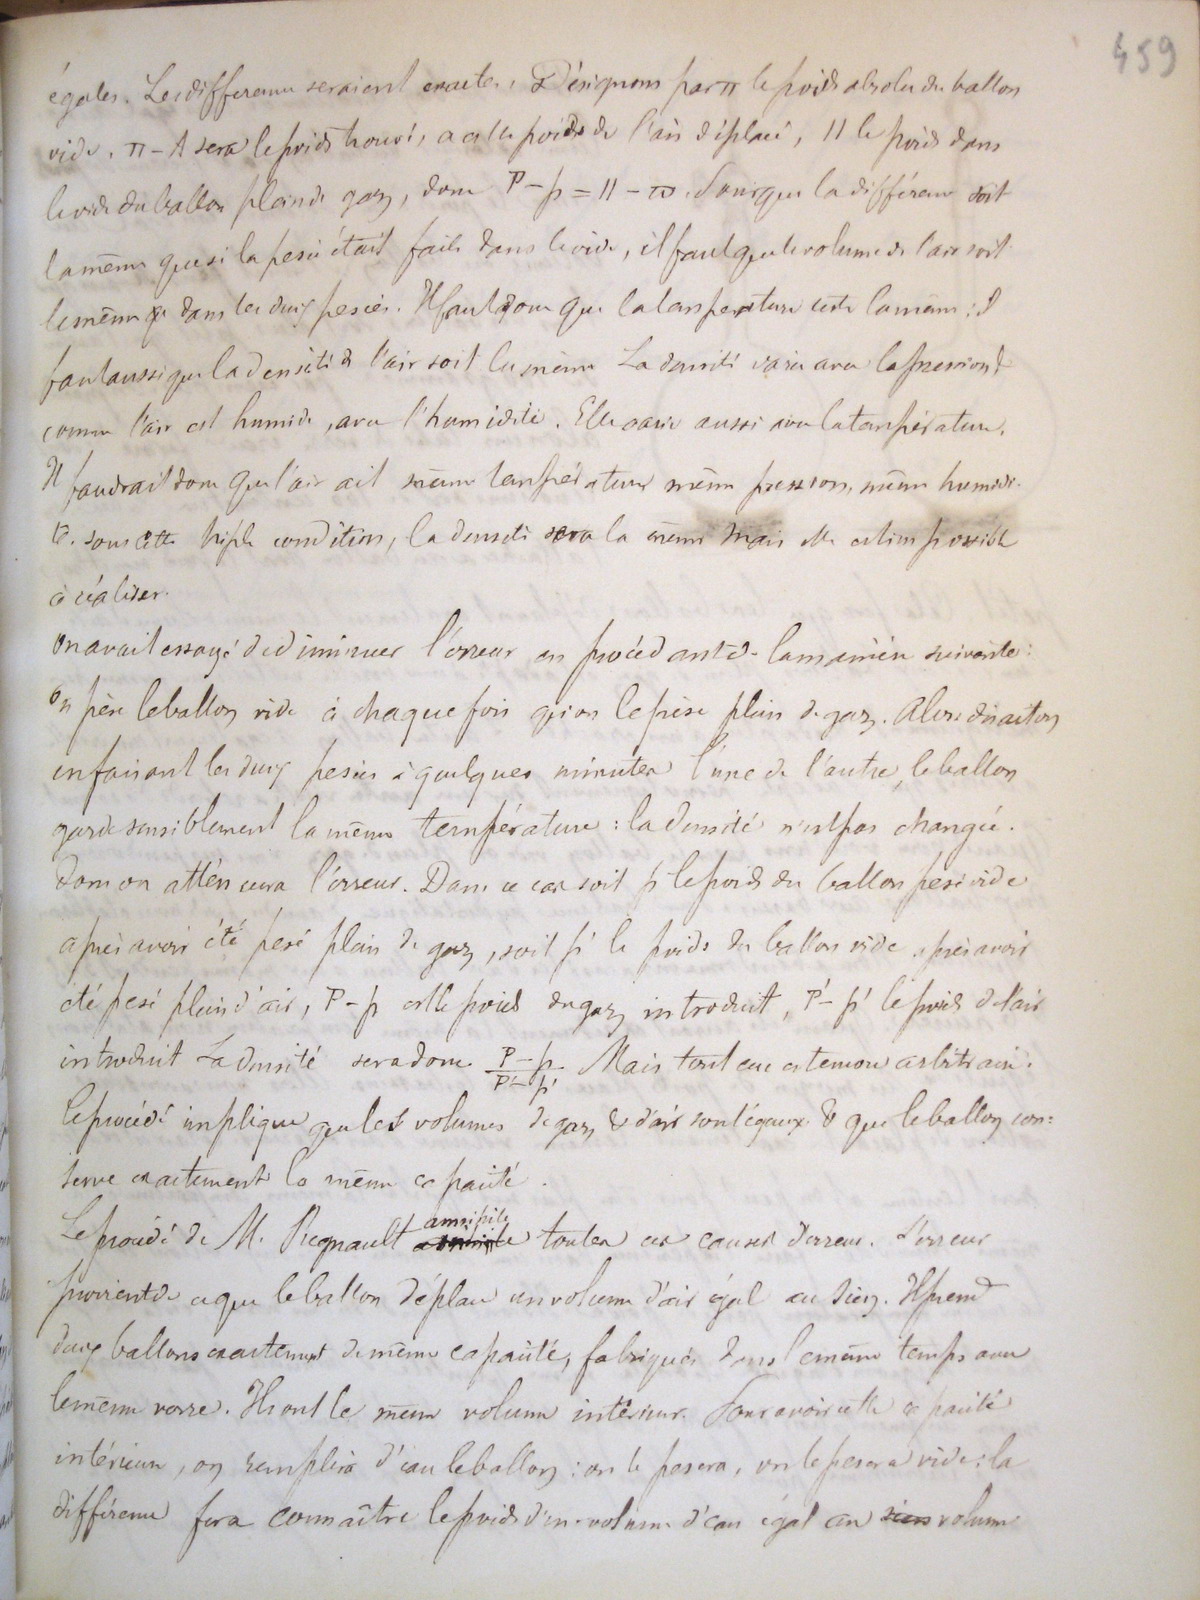 459
égales. Les différences seraient exactes. Désignons par π le poids absolu du ballon
vide. π – A sera le poids trouvé, a est le poids de l'air déplacé, Π le poids dans
le vide du ballon plein de gaz, donc P – p = Π – π. Pour que la différence soit
la même que si la pesée était faite dans le vide, il faut que le volume de l'air soit
le même dans les deux pesées. Il faut donc que la température reste la même : Il
faut aussi que la densité de l'air soit la même La densité varie avec la pression &
comme l'air est humide, avec l'humidité. Elle varie aussi avec la température.
Il faudrait donc que l'air ait même température même pression, même humidi-
té. sous cette triple condition, la densité sera la même Mais elle est impossible
à réaliser.
On avait essayé de diminuer l'erreur en procédant de la manière suivante :
On pèse le ballon vide à chaque fois qu'on le pèse plein de gaz. Alors disait on
en faisant les deux pesées à quelques minutes l'une de l'autre, le ballon
garde sensiblement la même température : la densité n'est pas changée.
Donc on atténuera l'erreur. Dans ce cas soit p le poids du ballon pesé vide
après avoir été pesé plein de gaz, soit p' le poids du ballon vide après avoir
été pesé plein d'air, P – p est le poids du gaz introduit, P' – p' le poids de l'air
introduit La densité sera donc P – p / P' – p' Mais tout ceci est encore arbitraire.
Le procédé implique que les volumes de gaz & d'air sont égaux & que le ballon con=
serve exactement la même capacité.
Le procédé de M. Regnault annihile toutes ces causes d'erreur. L'erreur
provient de ce que le ballon déplace un volume d'air égal au sien. Il prend
deux ballons exactement de même capacité, fabriqués dans le même temps avec
le même verre. Ils ont le même volume intérieur. Pour avoir cette capacité
intérieure, on remplira d'eau le ballon : on le pesera, on le pesera vide : la
différence fera connaître le poids d'un volume d'eau égal au sien volume